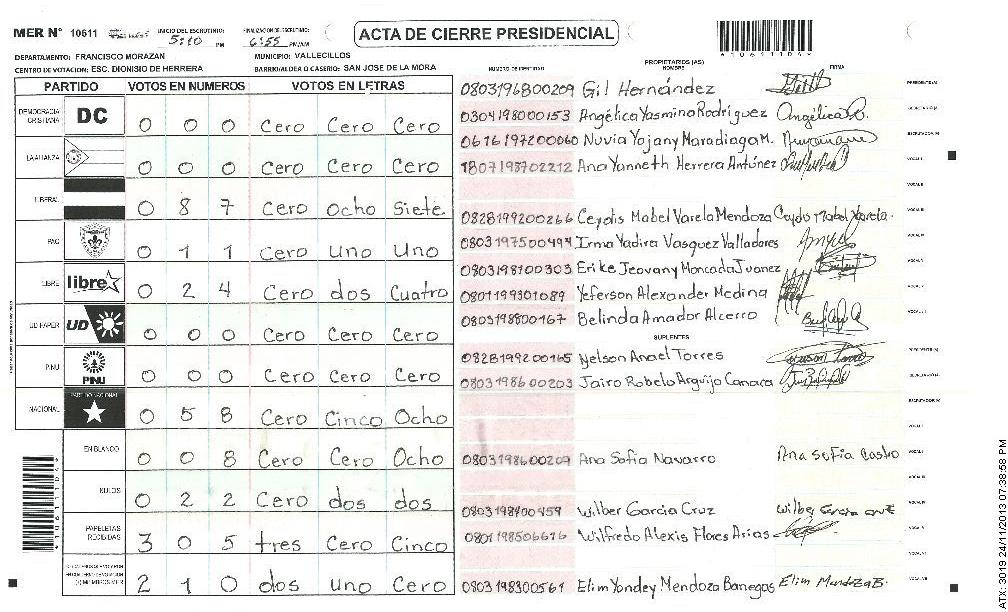 MER N° 10611 INICIO DEL ESCRUTINIO: 5:10 PM FINALIZACION DE ESCRUTINIO: 6:55 PM/AM ACTA DE CIERRE PRESIDENCIAL
*10611104*
DEPARTAMENTO: FRANCISCO MORAZAN MUNICIPIO: VALLECILLOS
CENTRO DE VOTACION: ESC. DIONISIO DE HERRERA BARRIO/ALDEA O CASERIO: SAN JOSE DE LA MORA
PARTIDO VOTOS EN NUMEROS VOTOS EN LETRAS
DEMOCRACIA CRISTIANA DC 0 0 0 Cero Cero Cero
LA ALIANZA 0 0 0 Cero Cero Cero
LIBERAL 0 8 7 Cero Ocho Siete
PAC 0 1 1 Cero Uno Uno
LIBRE libre 0 2 4 Cero dos Cuatro
UD FAPER UD 0 0 0 Cero Cero Cero
PINU PINU 0 0 0 Cero Cero Cero
NACIONAL PARTIDO NACIONAL 0 5 8 Cero Cinco Ocho
EN BLANCO 0 0 8 Cero Cero Ocho
NULOS 0 2 2 Cero dos dos
PAPELETAS RECIBIDAS 3 0 5 tres Cero Cinco
2 1 0 dos uno Cero
NUMERO DE IDENTIDAD PROPIETARIOS (AS) NOMBRE FIRMA
0803196800209 Gil Hernández
0304198000153 Angélica Yasmina Rodríguez Angélica
0616197200060 Nuvia Yojany Maradiaga M.
1807198702212 Ana Yanneth Herrera Antúnez
0828199200266 Ceydis Mabel Varela Mendoza Ceydis Mabel Varela
0803197500494 Irma Yadira Vasquez Valladares
0803198100303 Erike Jeovany Moncada Juanez
0801199301089 Yeferson Alexander Medina
0803198800167 Belinda Amador Alcerro
SUPLENTES
0828199200165 Nelson Anael Torres
0803198600203 Jairo Robelo Arguijo Canaca
0803198600209 Ana Sofia Navarro Ana Sofia Castro
0803198400459 Wilber Garcia Cruz Wilber Garcia
0801198506616 Wilfredo Alexis Flores Arias
0803198300561 Elim Yondey Mendoza Banegas Elim Mendoza B.
ATX 3019 24/11/2013 07:38:58 PM